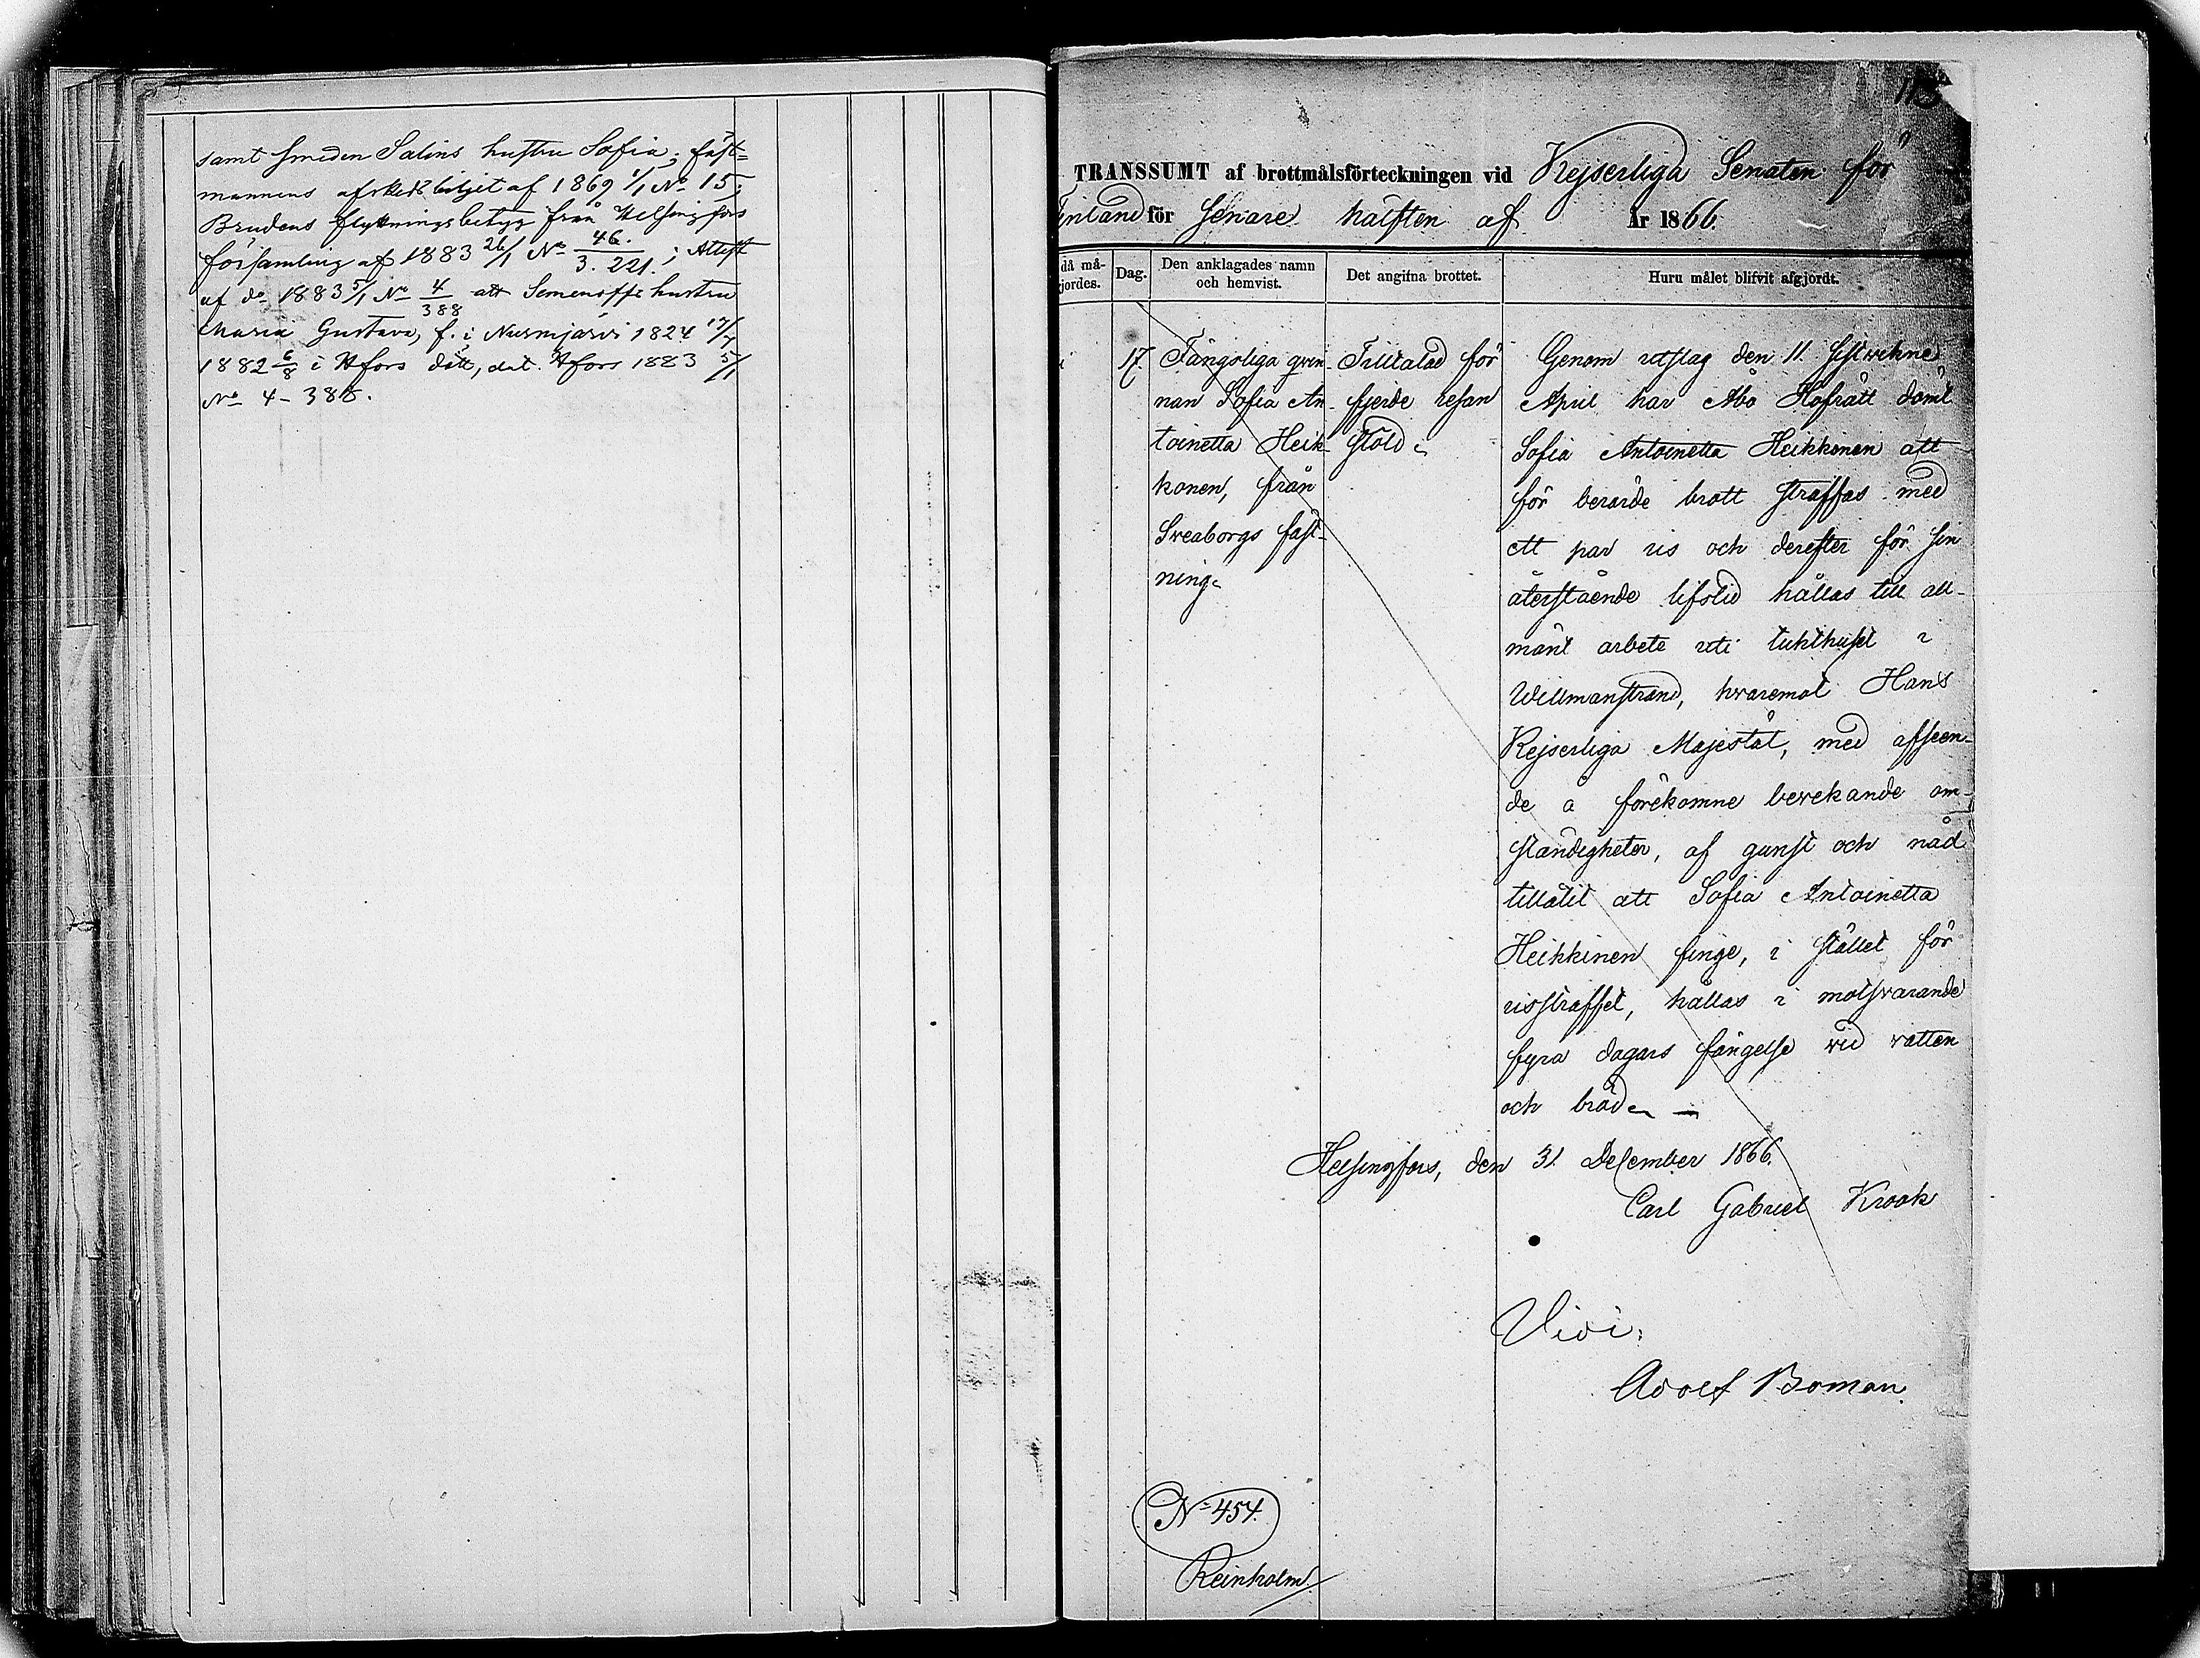 samt smeden Salins hustru Sofia; fäst=
mannens afskedsbiljet af 1869 1/1 No 15;
Brudens flyttningsbetyg från Helsingfors
församling af 1883 26/1 No 46./3.221.; Attest
af do 1883 5/1 No 4/388 att Semenoffs hustru
Maria Gustava, f. i Nurmijärvi 1824 17/7
1882 6/8 i Hfors död, dat. Hfors 1883 5/1
No 4-388.
115
TRANSSUMT af brottmålsförteckningen vid Kejserliga Senaten för
Finland för senare hälften af År 1866.
då må-
jordes.
Dag.
Den anklagades namn
och hemvist.
Det angifna brottet.
Huru målet blifvit afgjordt.
17.
Fängsliga qvin-
nan Sofia An-
toinetta Heik-
konen, från
Sveaborgs fäst-
ning.
Tilltalad för
fjerde resan
stöld.
Genom utslag den 11 sistvekne
April har Åbo Hofrätt dömt
Sofia Antoinetta Heikkonen att
för berörde brott straffas med
ett par ris och derefter för sin
återstående lifstid hållas till all-
mänt arbete uti tukthuset i
Willmanstrand, hvaremot Hans
Kejserliga Majestät, med afseen-
de å förekomne bevekande om-
ständigheter, af gunst och nåd
tillåtit att Sofia Antoinetta
Heikkinen finge, i stället för
risstraffet, hållas i motsvarande
fyra dagars fängelse vid vatten
och bröd. —
Helsingfors, den 31 December 1866.
Carl Gabriel Krook
Vidi:
Adolf Boman.
No 454.
Reinholm